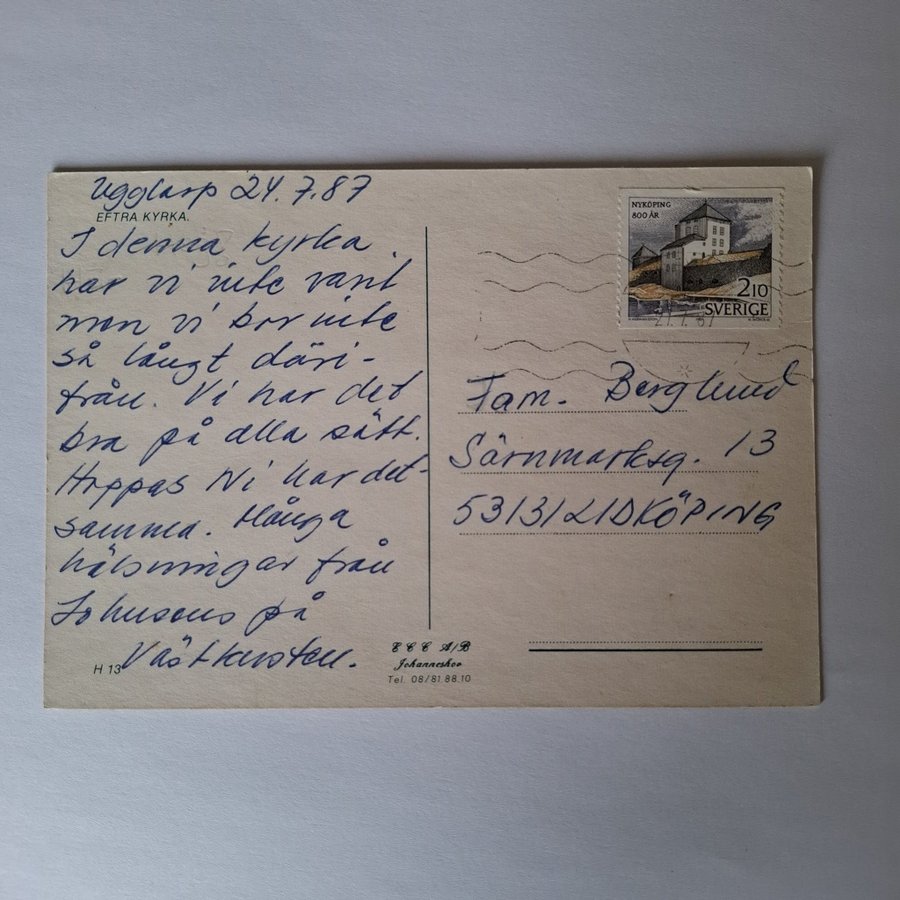 Ugglarp 24.7.87
EFTRA KYRKA.
I denna kyrka
har vi inte varit
men vi bor inte
så långt däri-
från. Vi har det
bra på alla sätt.
Hoppas Ni har det-
samma. Många
hälsningar från
Johnsons på
Västkusten.
H 13
ECC A/B
Johanneshov
Tel. 08/81 88.10
NYKÖPING
800 ÅR
210
SVERIGE
Fam. Berglund
Särnmarksg. 13
53131 LIDKÖPING